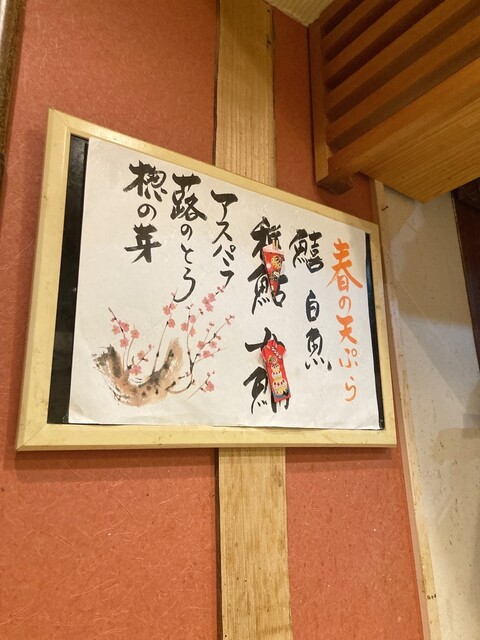 春の天ぷら
鱚 白魚
稚鮎
アスパラ
蕗のとう
楤の芽